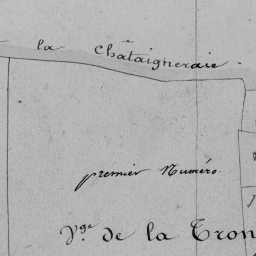 la Châtaigneraie.
premier Numéro.
V.ge de la Tron